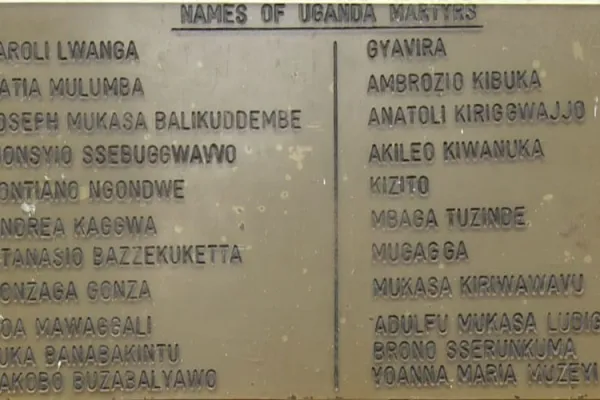 NAMES OF UGANDA MARTYRS
AROLI LWANGA
ATIA MULUMBA
OSEPH MUKASA BALIKUDDEMBE
IONSYIO SSEBUGGWAWO
ONTIANO NGONDWE
NDREA KAGGWA
TANASIO BAZZEKUKETTA
ONZAGA GONZA
OA MAWAGGALI
UKA BANABAKINTU
AKOBO BUZABALYAWO
GYAVIRA
AMBROZIO KIBUKA
ANATOLI KIRIGGWAJJO
AKILEO KIWANUKA
KIZITO
MBAGA TUZINDE
MUGAGGA
MUKASA KIRIWAWAVU
ADULFU MUKASA LUDIG
BRONO SSERUNKUMA
YOANNA MARIA MUZEYI